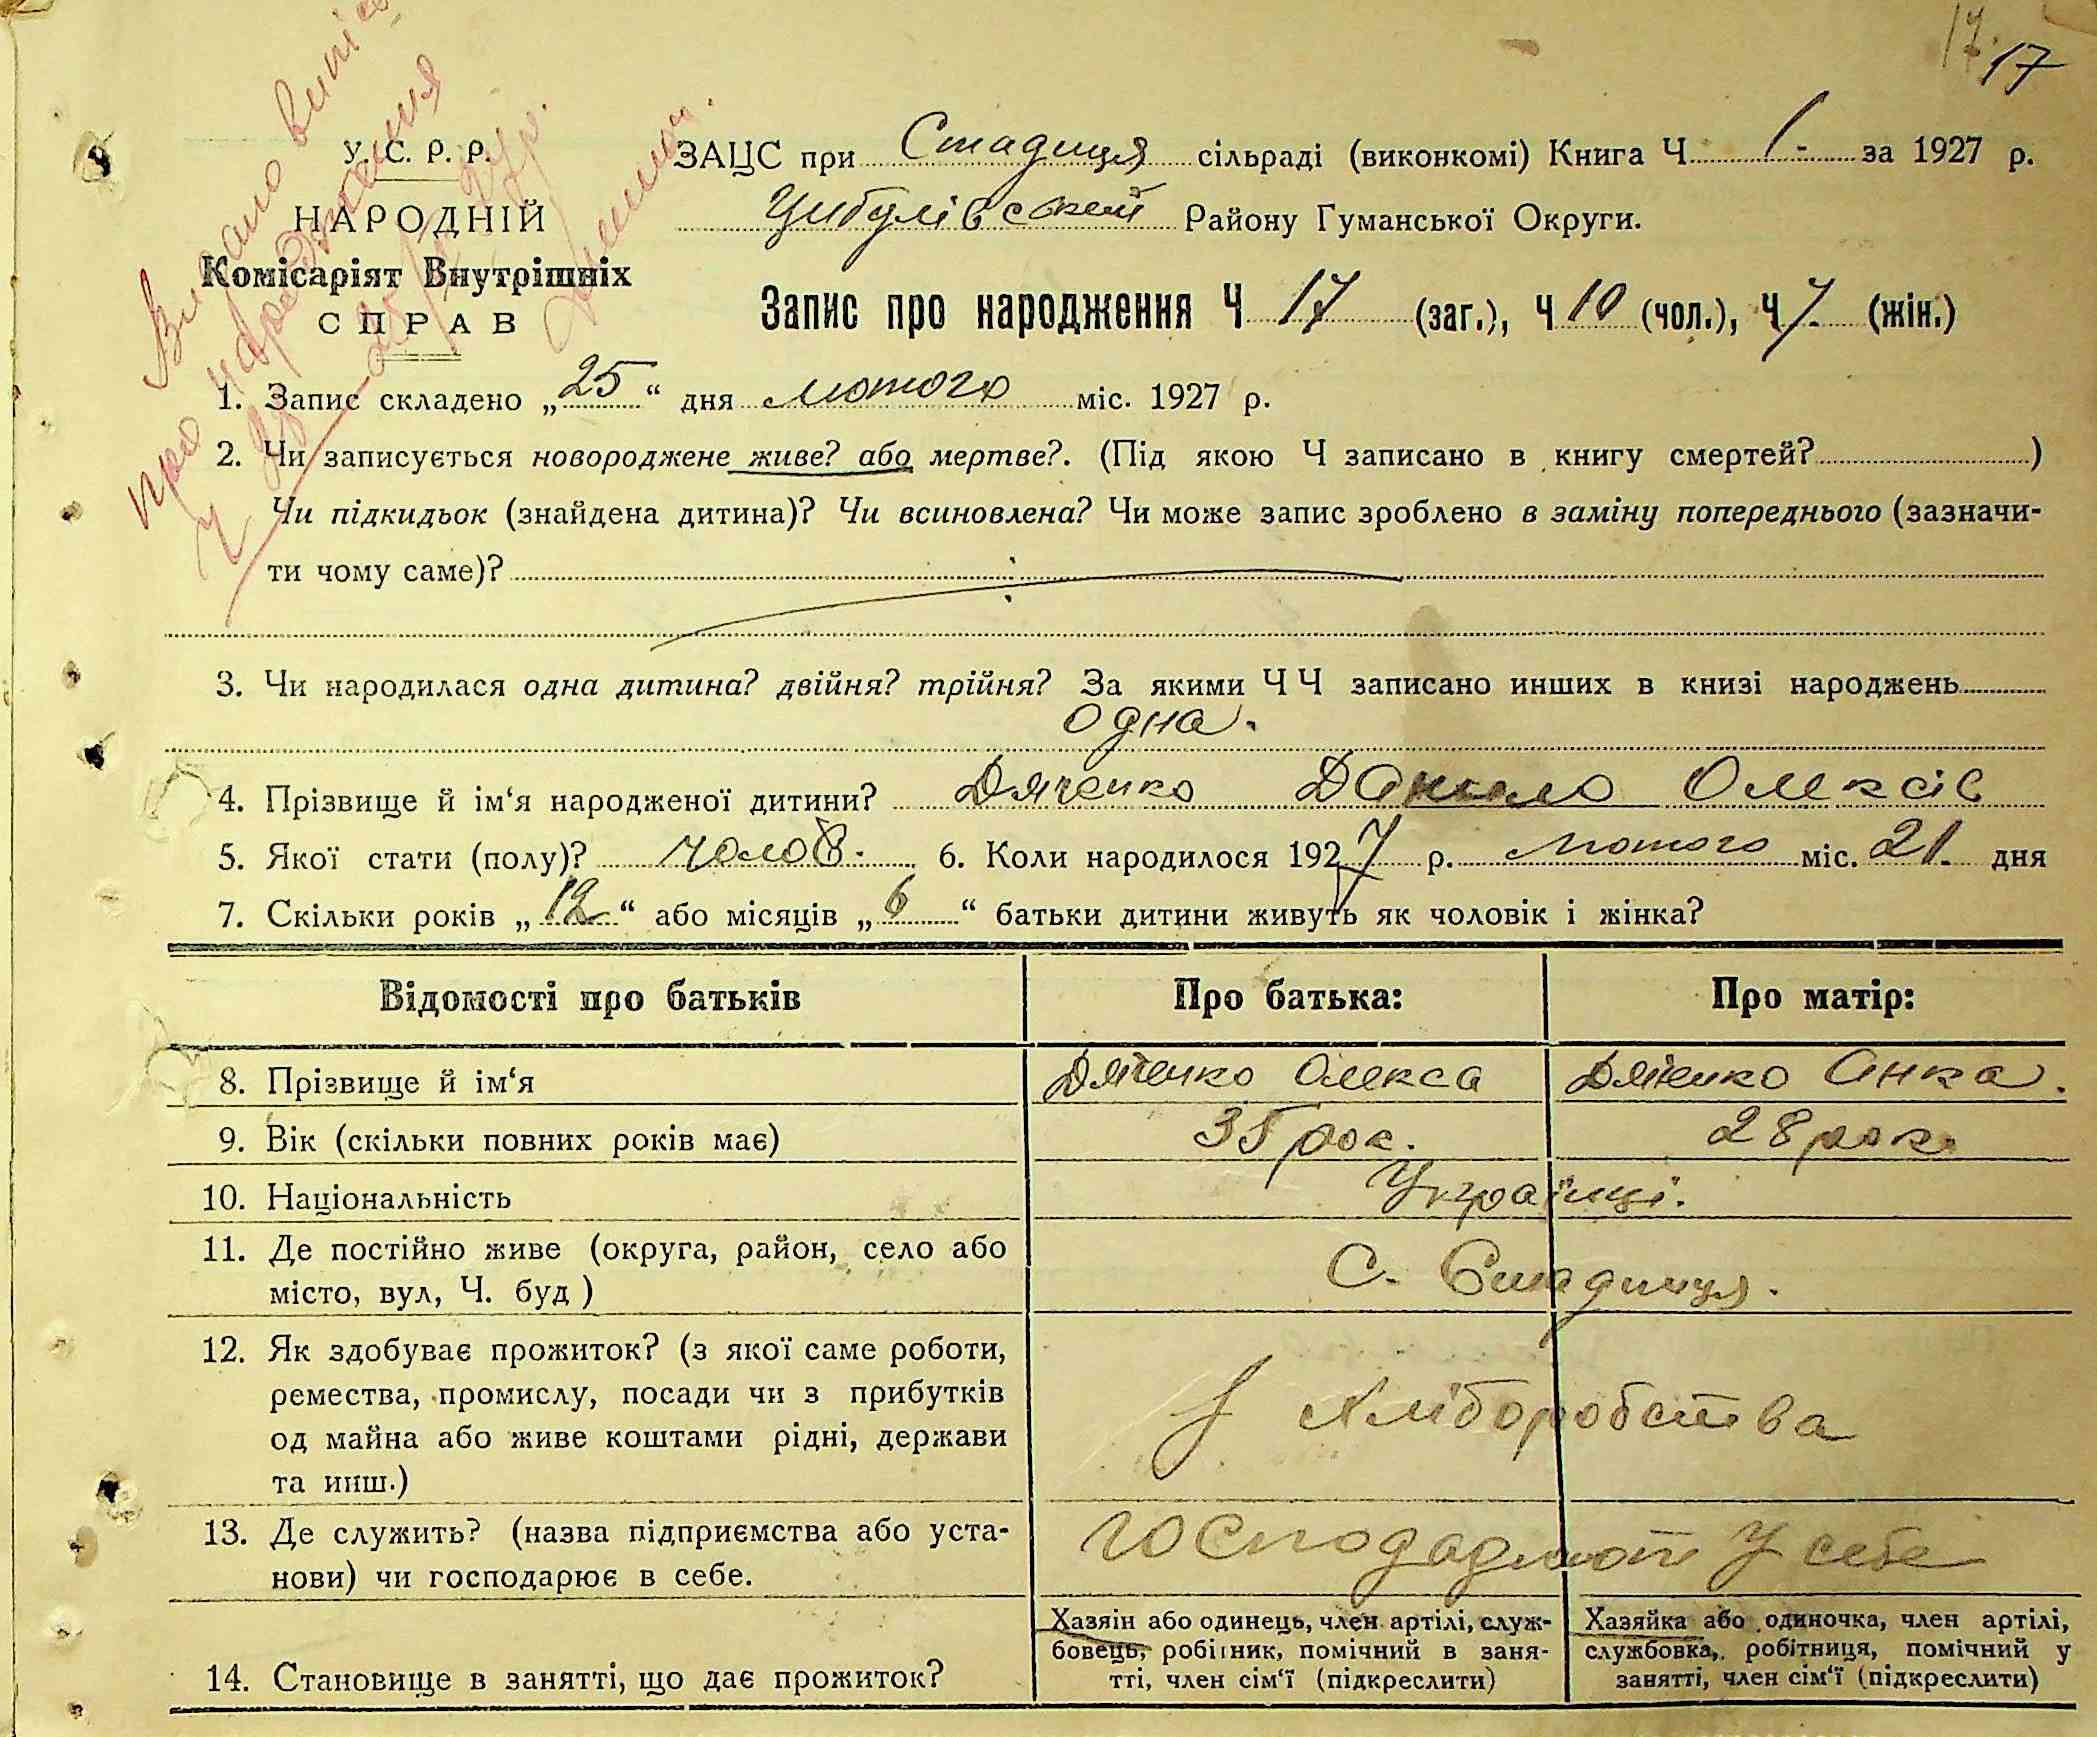 17. 17
У. С. Р. Р.
НАРОДНІЙ
Комісаріят Внутрішніх
СПРАВ
ЗАЦС при Стадиця сільраді (виконкомі) Книга Ч 1. за 1927 р.
Цибулівський Району Гуманської Округи.
Запис про народження Ч 17 (заг.), Ч 10 (чол.), Ч 7. (жін.)
Видано випис
про народження
1. Запис складено „25“ дня лютого міс. 1927 р.
2. Чи записується новороджене живе? або мертве?. (Під якою Ч записано в книгу смертей? )
Чи підкидьок (знайдена дитина)? Чи всиновлена? Чи може запис зроблено в заміну попереднього (зазначи-
ти чому саме)?
3. Чи народилася одна дитина? двійня? трійня? За якими ЧЧ записано инших в книзі народжень
одна.
4. Прізвище й ім‘я народженої дитини? Дяченко Данило Олексів
5. Якої стати (полу)? чолов. 6. Коли народилося 1927 р. лютого міс. 21. дня
7. Скільки років „12“ або місяців „6“ батьки дитини живуть як чоловік і жінка?
Відомості про батьків Про батька: Про матір:
8. Прізвище й ім‘я Дяченко Олекса Дяченко Анка.
9. Вік (скільки повних років має) 35 рок. 28 рок.
10. Національність Українці.
11. Де постійно живе (округа, район, село або
місто, вул, Ч. буд ) С. Стадиця.
12. Як здобуває прожиток? (з якої саме роботи,
ремества, промислу, посади чи з прибутків
од майна або живе коштами рідні, держави
та инш.)
З Хліборобства
13. Де служить? (назва підприємства або уста-
нови) чи господарює в себе.
у себе
14. Становище в занятті, що дає прожиток?
Хазяїн або одинець, член артілі, служ-
бовець, робітник, помічний в заня-
тті, член сім‘ї (підкреслити)
Хазяйка або одиночка, член артілі,
службовка, робітниця, помічний у
занятті, член сім‘ї (підкреслити)